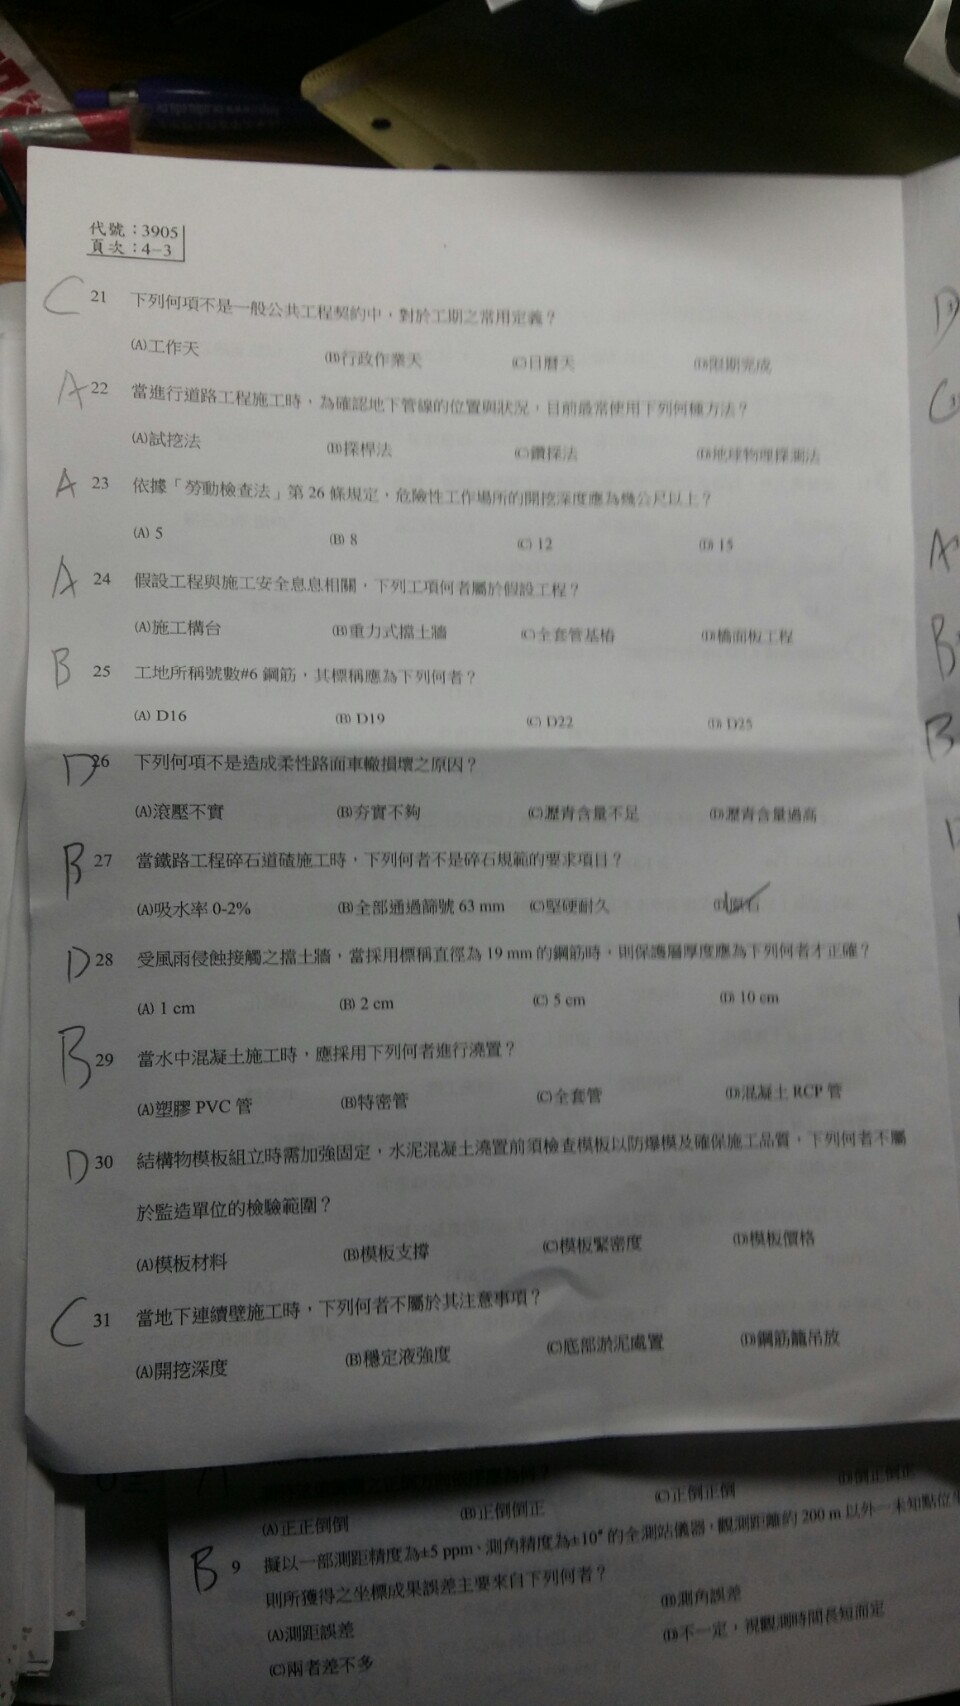 代號：3905
頁次：4－3
C 21 下列何項不是一般公共工程契約中，對於工期之常用定義？
(A)工作天 (B)行政作業天 (C)日曆天 (D)限期完成
A 22 當進行道路工程施工時，為確認地下管線的位置與狀況，目前最常使用下列何種方法？
(A)試挖法 (B)探桿法 (C)鑽探法 (D)地球物理探測法
A 23 依據「勞動檢查法」第 26 條規定，危險性工作場所的開挖深度應為幾公尺以上？
(A) 5 (B) 8 (C) 12 (D) 15
A 24 假設工程與施工安全息息相關，下列工項何者屬於假設工程？
(A)施工構台 (B)重力式擋土牆 (C)全套管基樁 (D)橋面板工程
B 25 工地所稱號數#6 鋼筋，其標稱應為下列何者？
(A) D16 (B) D19 (C) D22 (D) D25
D 26 下列何項不是造成柔性路面車轍損壞之原因？
(A)滾壓不實 (B)夯實不夠 (C)瀝青含量不足 (D)瀝青含量過高
B 27 當鐵路工程碎石道碴施工時，下列何者不是碎石規範的要求項目？
(A)吸水率 0-2% (B)全部通過篩號 63 mm (C)堅硬耐久 (D)
D 28 受風雨侵蝕接觸之擋土牆，當採用標稱直徑為 19 mm 的鋼筋時，則保護層厚度應為下列何者才正確？
(A) 1 cm (B) 2 cm (C) 5 cm (D) 10 cm
B 29 當水中混凝土施工時，應採用下列何者進行澆置？
(A)塑膠 PVC 管 (B)特密管 (C)全套管 (D)混凝土 RCP 管
D 30 結構物模板組立時需加強固定，水泥混凝土澆置前須檢查模板以防爆模及確保施工品質，下列何者不屬
於監造單位的檢驗範圍？
(A)模板材料 (B)模板支撐 (C)模板緊密度 (D)模板價格
C 31 當地下連續壁施工時，下列何者不屬於其注意事項？
(A)開挖深度 (B)穩定液強度 (C)底部淤泥處置 (D)鋼筋籠吊放
(A)正正倒倒 (B)正倒倒正 (C)正倒正倒 (D)倒正倒正
B 9 擬以一部測距精度為±5 ppm、測角精度為±10″ 的全測站儀器，觀測距離約 200 m 以外一未知點位
則所獲得之坐標成果誤差主要來自下列何者？
(A)測距誤差 (B)測角誤差
(C)兩者差不多 (D)不一定，視觀測時間長短而定
D
C
A
B
B